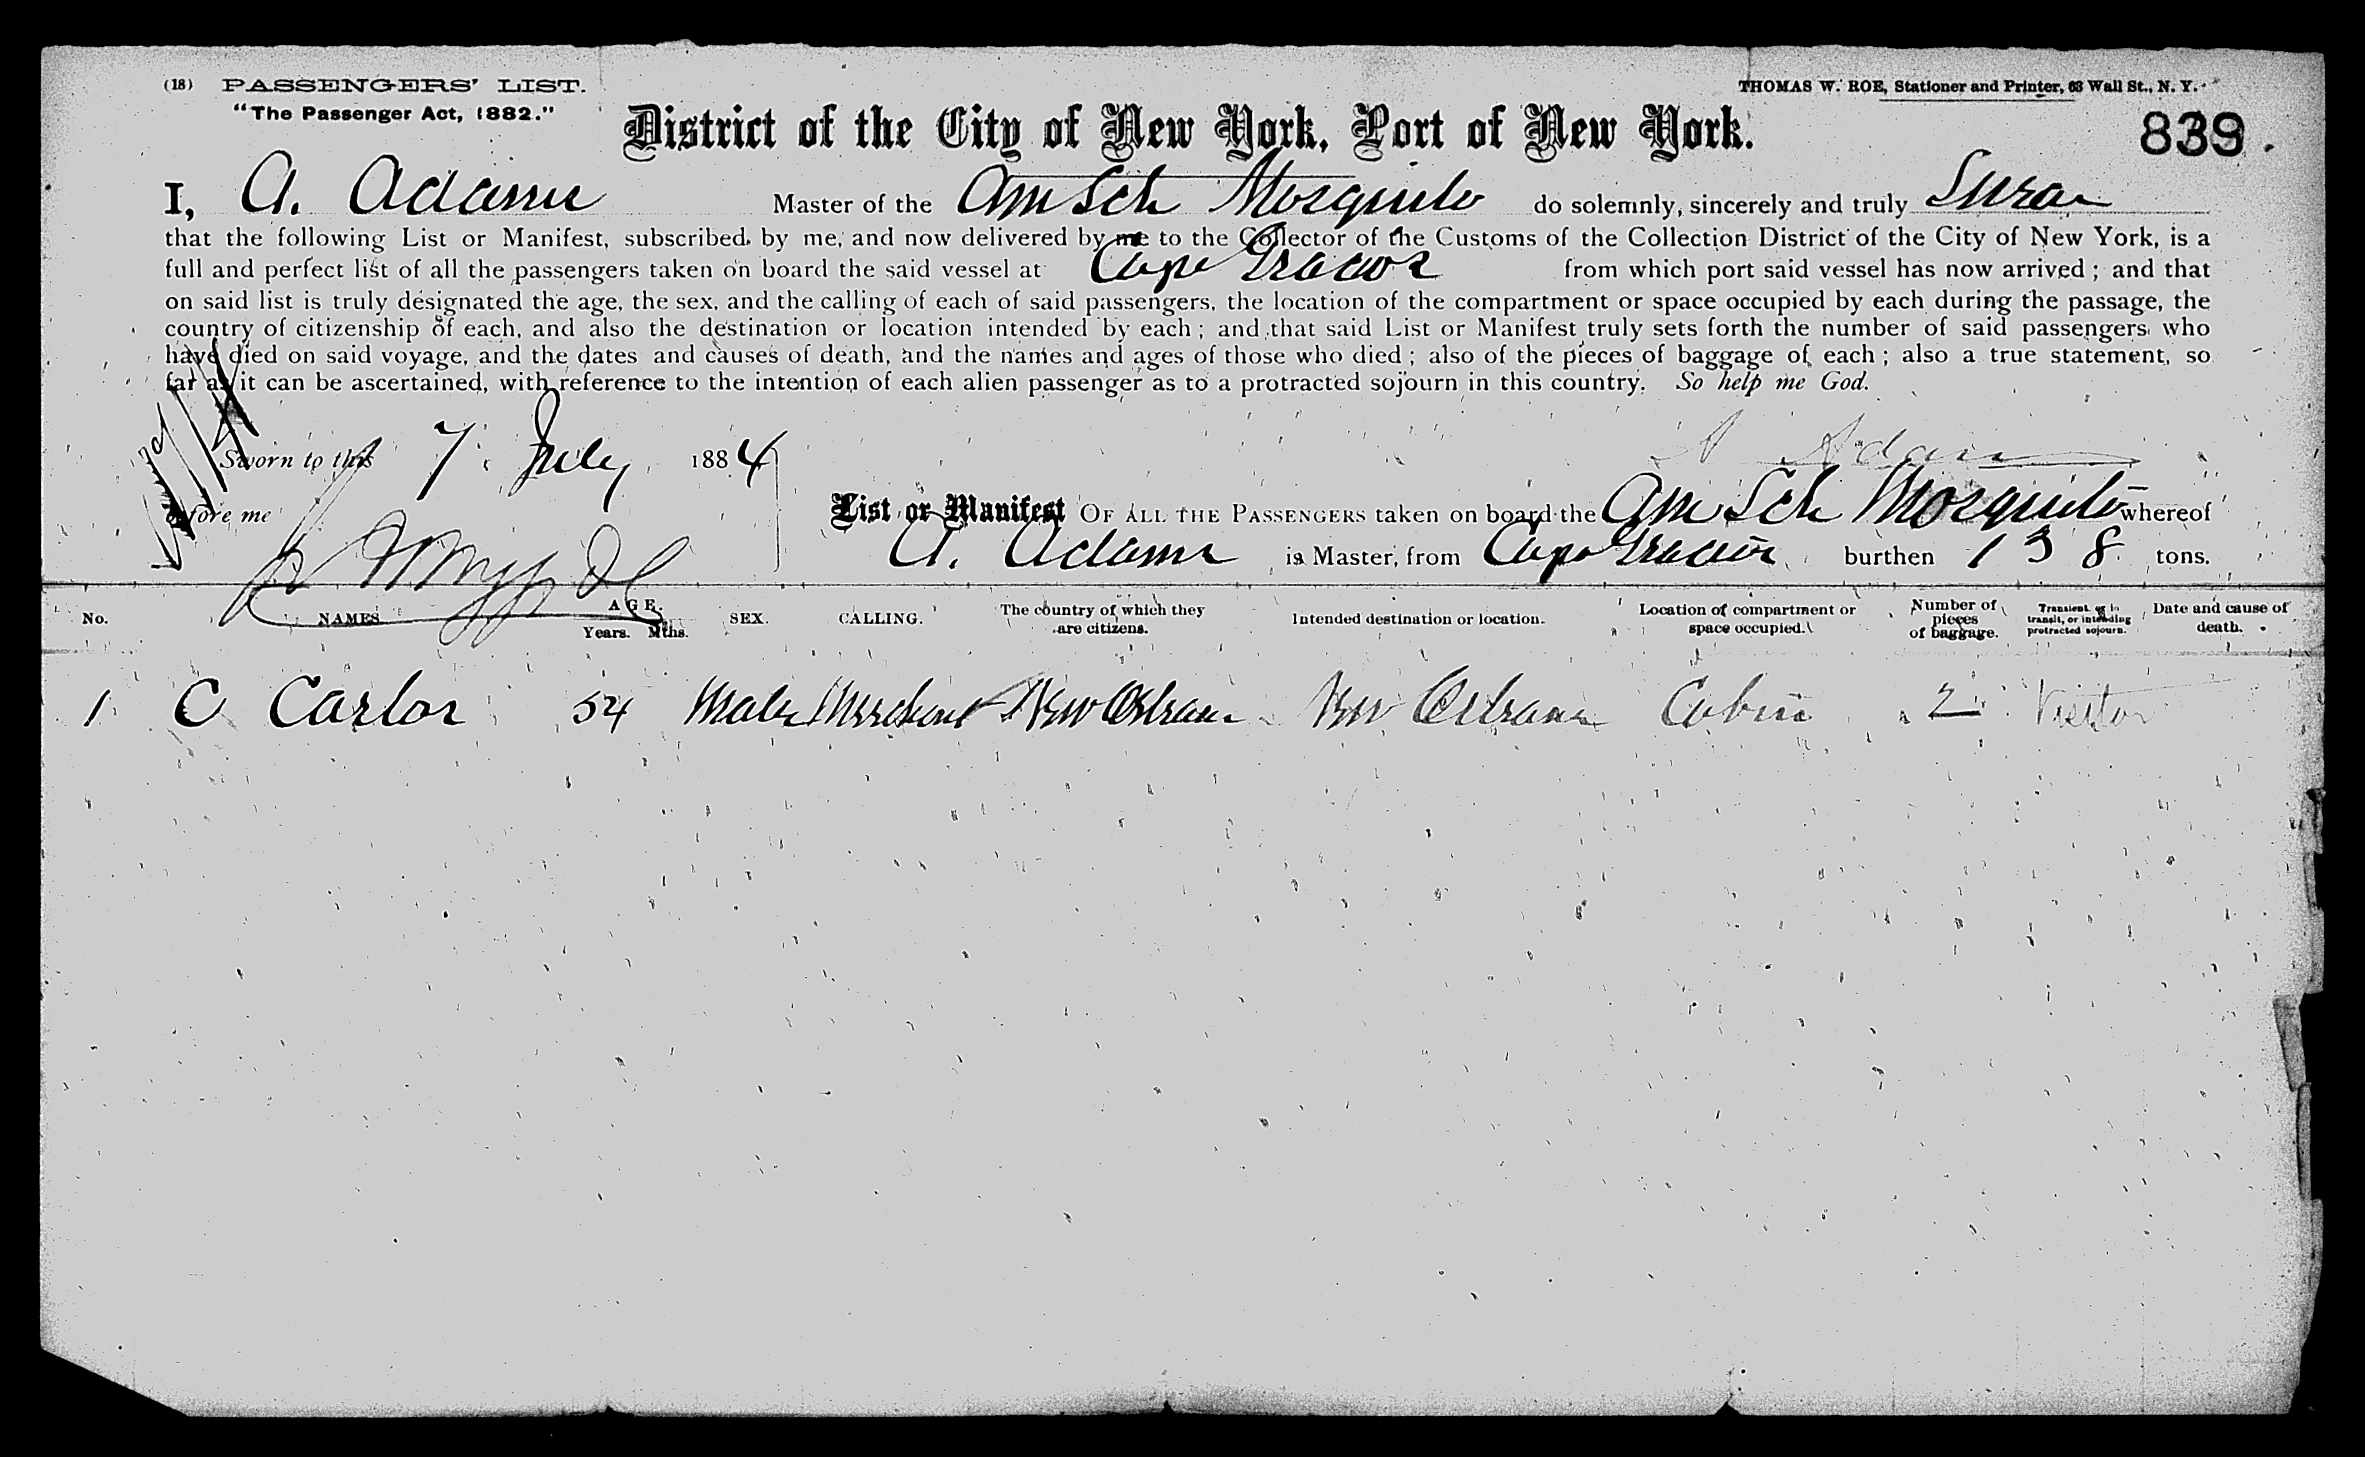 (18) PASSENGERS' LIST.
THOMAS W. ROE, Stationer and Printer, 63 Wall St., N. Y.
"The Passenger Act, 1882."
District of the City of New York, Port of New York.
839
I, A. Adams Master of the Am Sch Mosquito do solemnly, sincerely and truly Swear
that the following List or Manifest, subscribed by me, and now delivered by me to the Collector of the Customs of the Collection District of the City of New York, is a
full and perfect list of all the passengers taken on board the said vessel at Cape Gracios from which port said vessel has now arrived; and that
on said list is truly designated the age, the sex, and the calling of each of said passengers, the location of the compartment or space occupied by each during the passage, the
country of citizenship of each, and also the destination or location intended by each; and that said List or Manifest truly sets forth the number of said passengers who
have died on said voyage, and the dates and causes of death, and the names and ages of those who died; also of the pieces of baggage of each; also a true statement, so
far as it can be ascertained, with reference to the intention of each alien passenger as to a protracted sojourn in this country. So help me God.
Sworn to this 7 July 1884
A Adams
before me
List or Manifest OF ALL THE PASSENGERS taken on board the Am Sch Mosquito whereof
A. Adams is Master, from Cape Gracios burthen 138 tons.
No. NAMES AGE. Years. Mths. SEX. CALLING. The country of which they are citizens. Intended destination or location. Location of compartment or space occupied. Number of pieces of baggage. Transient, or in transit, or intending protracted sojourn. Date and cause of death.
1 C Carlos 54 Male Merchant New Orleans New Orleans Cabin 2 Visitor